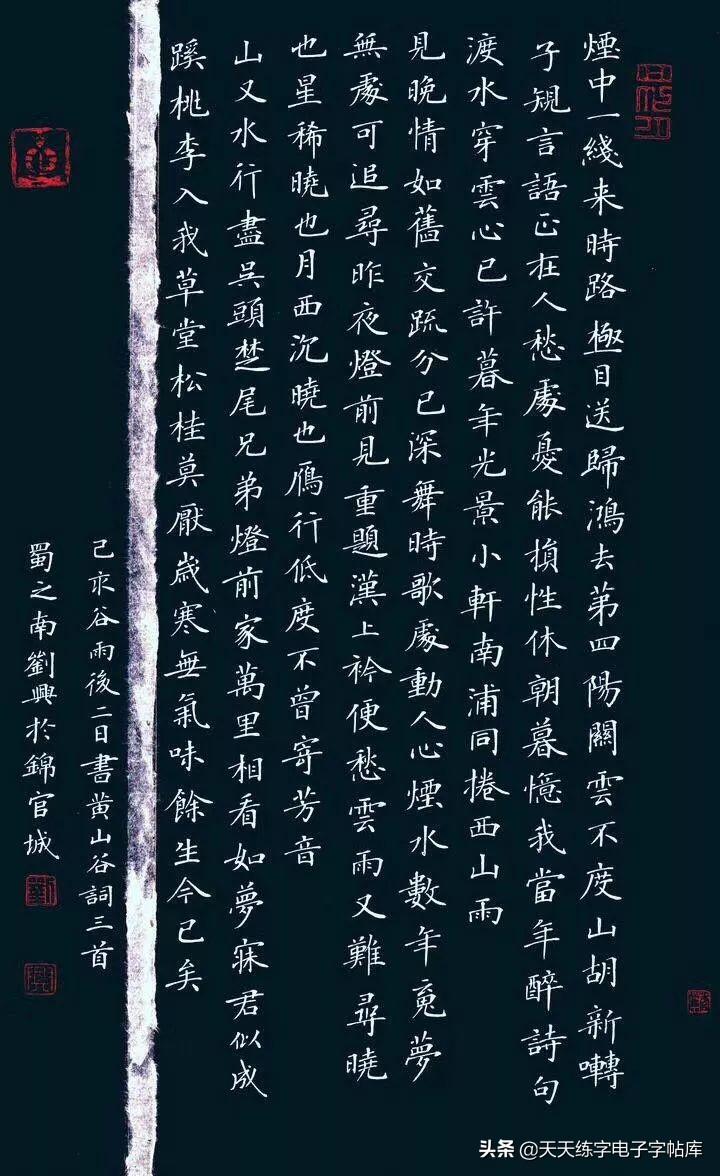 煙中一綫来時路極目送歸鴻去第四陽關雲不度山胡新囀
子規言語正在人愁處憂能損性休朝暮憶我當年醉詩句
渡水穿雲心已許暮年光景小軒南浦同捲西山雨
見晚情如舊交疏分已深舞時歌處動人心煙水數年竟夢
無處可追尋昨夜燈前見重題漢上衿便愁雲雨又難尋曉
也星稀曉也月西沉曉也鴈行低度不曾寄芳音
山又水行盡吳頭楚尾兄弟燈前家萬里相看如夢寐君似成
蹊桃李入我草堂松桂莫厭歲寒無氣味餘生今已矣
己亥谷雨後二日書黄山谷詞三首
蜀之南劉興於錦官城
劉
興
头条 @天天练字电子字帖库